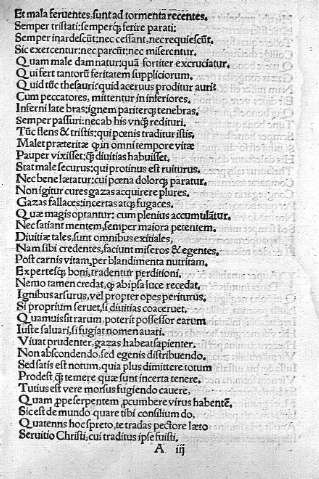 Et mala feruentes, sunt ad tormenta recentes.
Semper tristati: semperq̃ ferire parati:
Semper inardescũt: nec cessant, nec requiescũt.
Sic exercentur: nec parcũt: nec miserentur.
Quam male damnatur: quã fortiter excruciatur.
Qui fert tantorũ feritatem suppliciorum.
Quid tũc thesauri: quid aceruus proditur auri?
Cum peccatores, mittentur in inferiores.
Inferni latebras; ignem pariterq; tenebras;
Semper passuri: nec ab his vnq̃ redituri.
Tũc flens & tristis: qui pœnis traditur istis,
Malet præteritæ qn in omni tempore vitæ
Pauper vixisset: q̃ diuitias habuisset.
Stat male securus: qui protinus est ruiturus.
Nec bene lætatur: cui pœna dolorq; paratur.
Non igitur cures gazas acquirere plures.
Gazas fallaces: incertas atq; fugaces.
Quæ magis optantur: cum plenius accumulãtur.
Nec satiant mentem, semper maiora petentem.
Diuitiæ tales, sunt omnibus exitiales,
Nam sibi credentes, faciunt miseros & egentes.
Post carnis vitam, per blandimenta nutritam,
Expertesq; boni, tradentur perditioni.
Nemo tamen credat, q ab ipsa luce recedat,
Ignibus arsurus, vel propter opes periturus,
Si proprium seruet, si diuitias coaceruet,
Quamuis sit rarum, poterit possessor earum
Iuste saluari, si fugiat nomen auari.
Viuat prudenter, gazas habeat sapienter.
Non abscondendo, sed egenis distribuendo.
Sed satis est notum, quia plus dimittere totum
Prodest q̃ temere quæ sunt incerta tenere.
Tutius est vere morsus fugiendo cauere,
Quam ,ppe serpentem ,pcumbere virus habentẽ.
Sic est de mundo, quare tibi consilium do.
Quatenus hoc spreto, te tradas pectore læto
Seruitio Christi, cui traditus ipse fuisti.
A iij